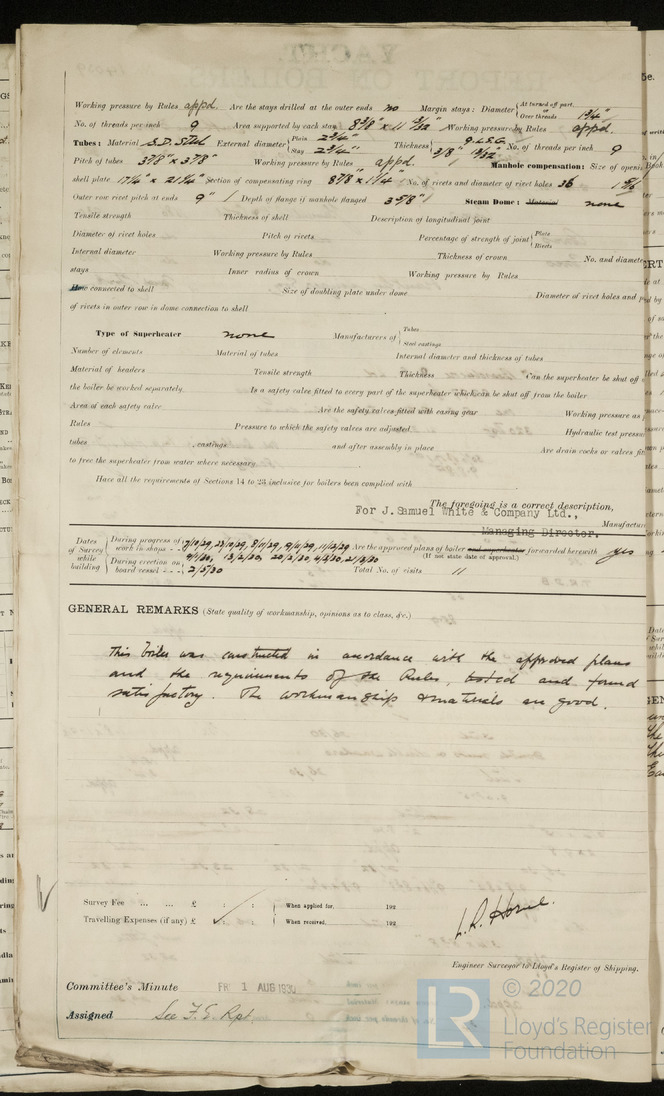 Working pressure by Rules appd. Are the stays drilled at the outer ends no Margin stays: Diameter { At turned off part, Over threads 1 3/4"
No. of threads per inch 9 Area supported by each stay 8 3/8" x 11 Working pressure by Rules appd.
Tubes: Material S.D. Steel External diameter { Plain 2 3/4" Stay 2 3/4" Thickness { 9 L.S.G. No. of threads per inch 9
Pitch of tubes 3 7/8" x 3 7/8" Working pressure by Rules appd. Manhole compensation: Size of
shell plate 17 1/4" x 21 1/4" Section of compensating ring 8 7/8" x 1 1/4" No. of rivets and diameter of rivet holes 36
Outer row rivet pitch at ends 9" Depth of flange if manhole flanged 3 5/8" Steam Dome: Material none
Tensile strength Thickness of shell Description of longitudinal joint
Diameter of rivet holes Pitch of rivets Percentage of strength of joint { Plate Rivets
Internal diameter Working pressure by Rules Thickness of crown No. and diameter
stays Inner radius of crown Working pressure by Rules
How connected to shell Size of doubling plate under dome Diameter of rivet holes and
of rivets in outer row in dome connection to shell
Type of Superheater none Manufacturers of { Tubes Steel castings
Number of elements Material of tubes Internal diameter and thickness of tubes
Material of headers Tensile strength Thickness Can the superheater be shut off
the boiler be worked separately Is a safety valve fitted to every part of the superheater which can be shut off from the boiler
Area of each safety valve Are the safety valves fitted with easing gear Working pressure as
Rules Pressure to which the safety valves are adjusted Hydraulic test pressure
tubes , castings and after assembly in place Are drain cocks or valves
to free the superheater from water where necessary
Have all the requirements of Sections 14 to 23 inclusive for boilers been complied with
The foregoing is a correct description,
For J. Samuel White & Company Ltd.,
Manufacturer
Managing Director.
Dates of Survey while building { During progress of work in shops - - 7/10/29, 29/10/29, 8/11/29, 19/11/29, 11/12/29 Are the approved plans of boiler and superheater forwarded herewith yes
(If not state date of approval.)
During erection on board vessel - - - 9/1/30, 13/2/30, 20/2/30, 4/3/30, 21/3/30
2/5/30 Total No. of visits 11
GENERAL REMARKS (State quality of workmanship, opinions as to class, &c.)
This boiler was constructed in accordance with the approved plans
and the requirements of the Rules, tested and found
satisfactory. The workmanship & materials are good.
Survey Fee ... ... £ : : When applied for, 192
Travelling Expenses (if any) £ : : When received, 192
L. R. Horne.
Engineer Surveyor to Lloyd's Register of Shipping.
Committee's Minute FRI 1 AUG 1930
Assigned See F.E. Rpt.
© 2020
LR Lloyd's Register
Foundation